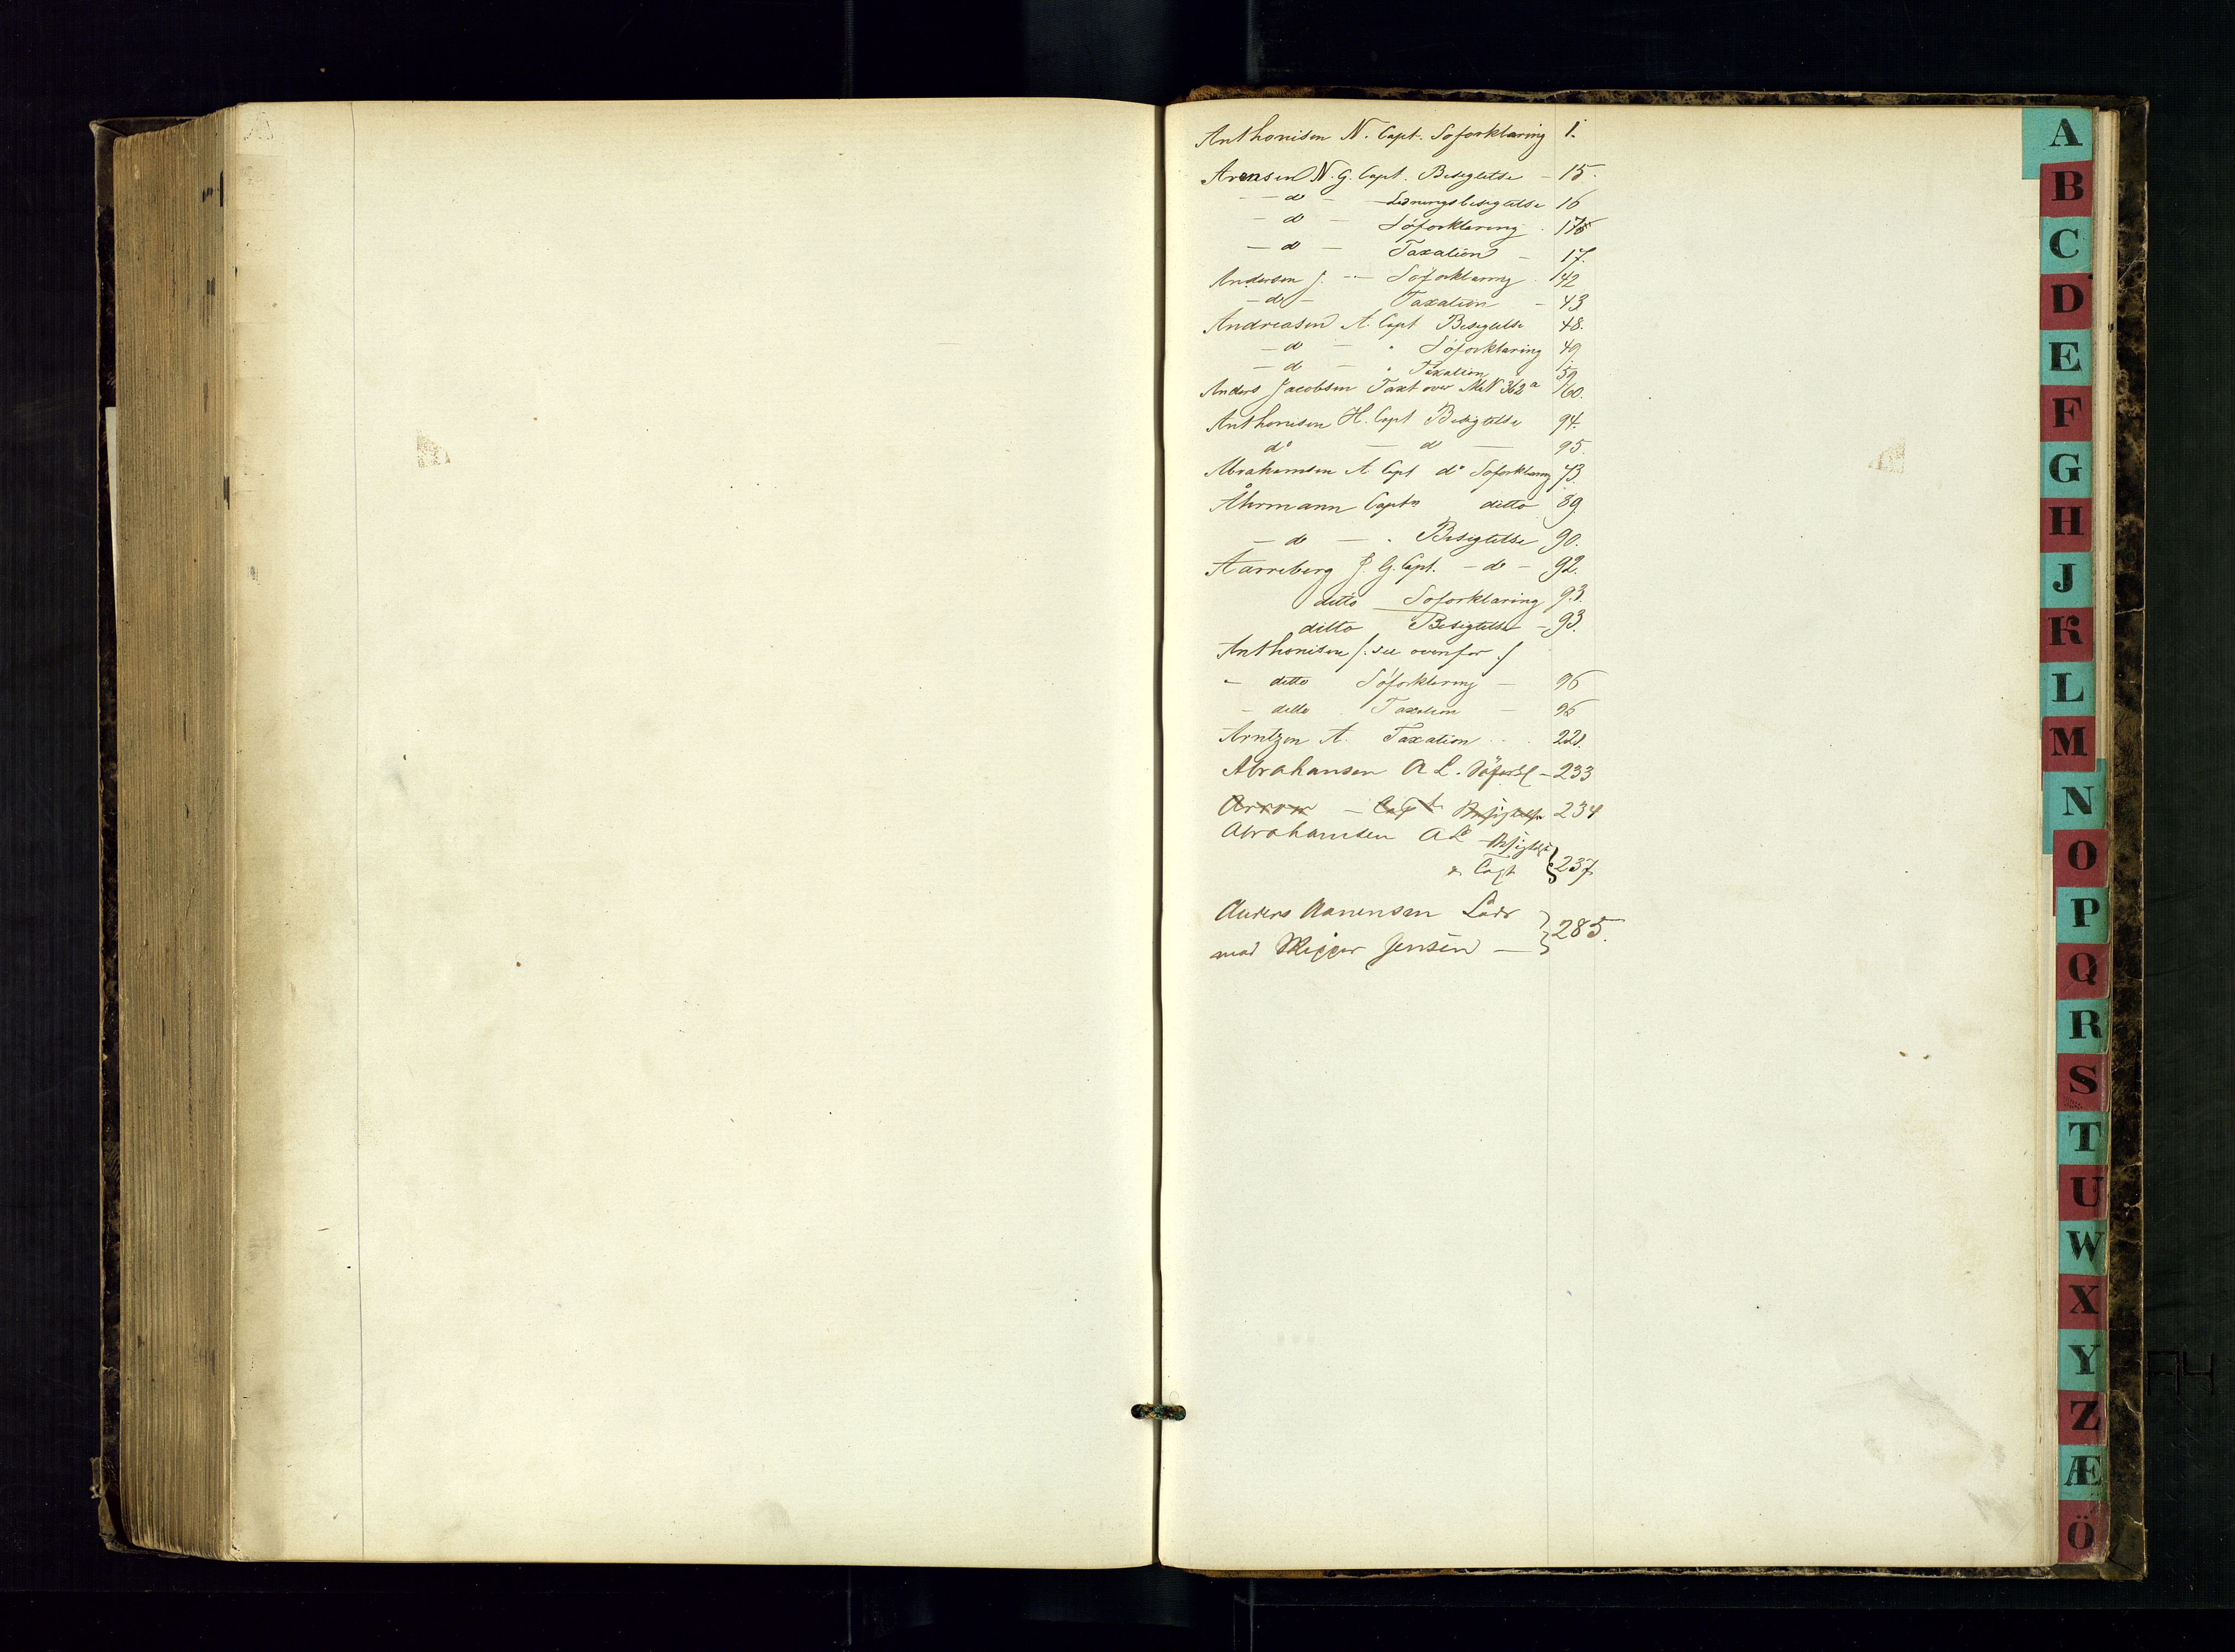 Anthonisen N. Capt. Søforklaring 1.
Arensen N. G. Capt. Besigtelse – 15.
– do – Losningsbesigtelse 16
– do – Søforklaring . 176
– do – Taxation – 17.
Andersen J. – Søforklaring . 142
– do – Taxation – 43
Andreasen A. Capt Besigtelse 48.
– do – " Søforklaring 49
– do – " Taxation 59
Anders Jacobsen Taxt over M.N 362 a 60.
Anthonisen H. Capt Besigtelse 94.
do – do – 95.
Abrahamsen A. Capt do Søforklaring 73.
Åhrmann Captn ditto 89.
– do – " Besigtelse 90.
Aarreberg J. G. Capt. – do – 92.
ditto Søforklaring 93.
ditto Besigtelse – 93.
Anthonisen /: see ovenfor :/
– ditto Søforklaring – 96
– ditto Taxation – 96
Arntzen A. Taxation . . 221.
Abrahamsen A L. Søforkl – 233
Arrow – Capt Besigtelse 234
Abrahamsen A L Besigtelse
& Taxt } 237
Anders Aanensen Lods
mod Skipper Jensen – } 285.
A
B
C
D
E
F
G
H
J
K
L
M
N
O
P
Q
R
S
T
U
W
X
Y
Z
Æ
Ö